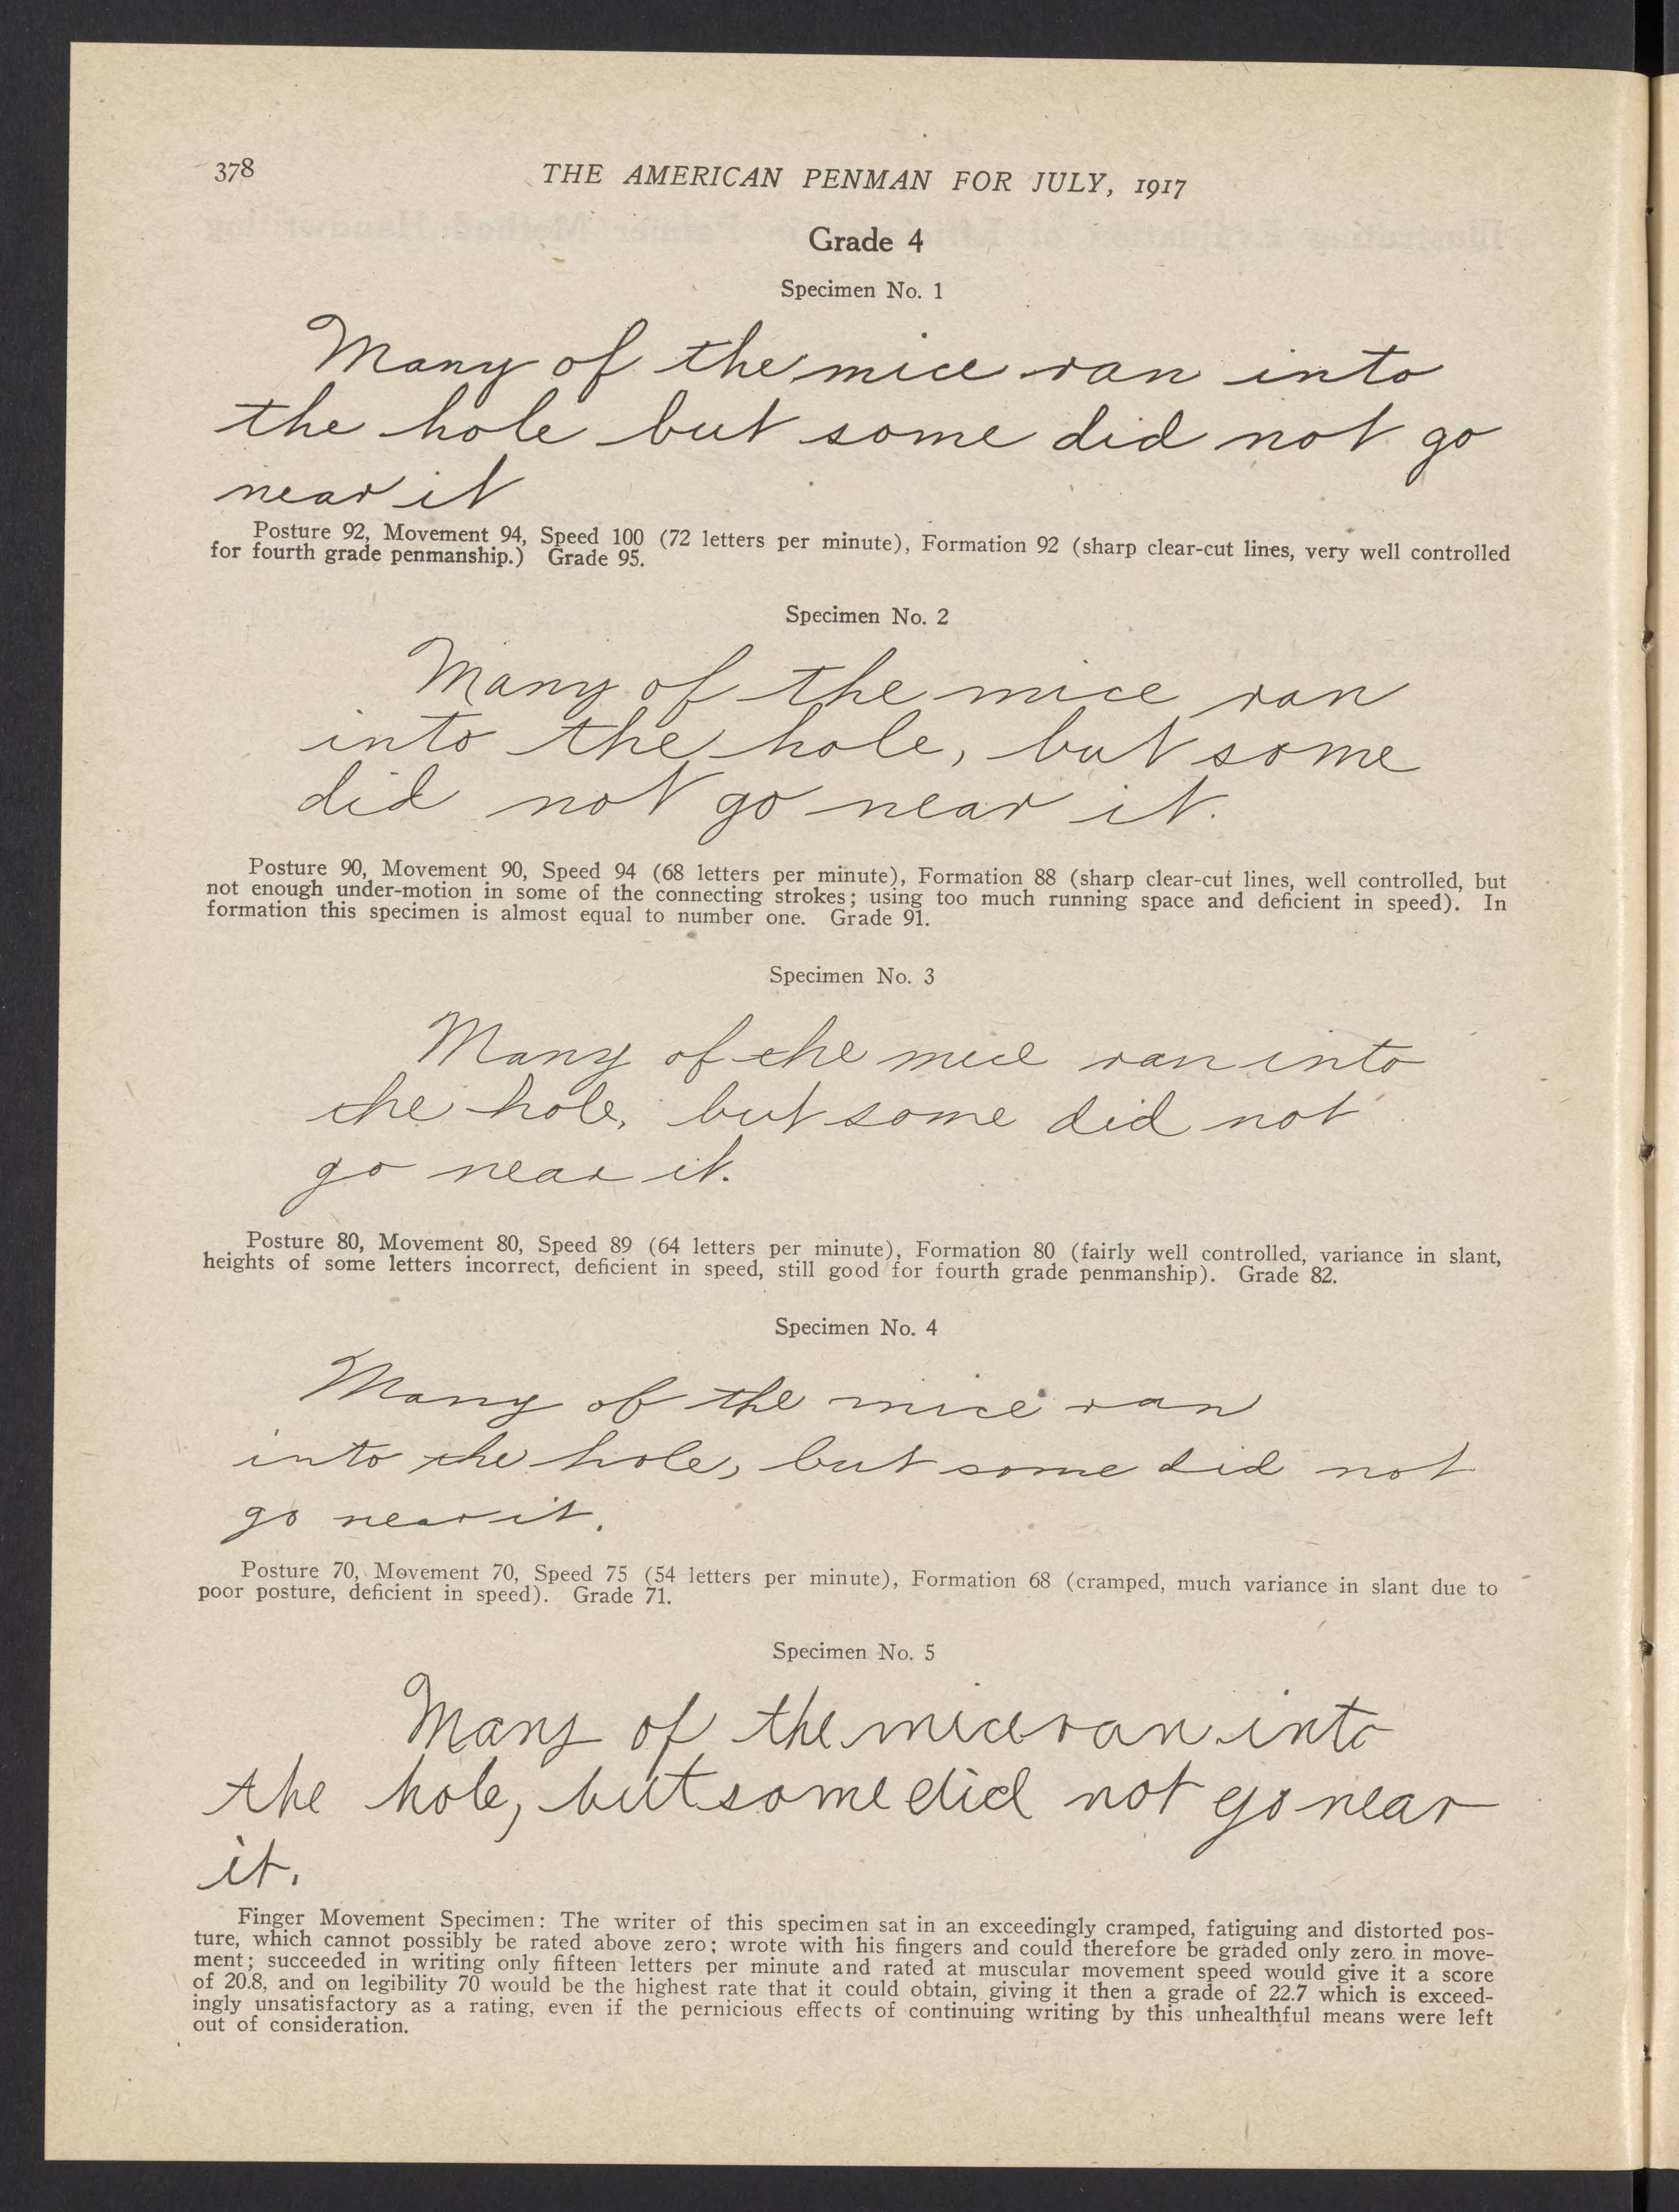 378
THE AMERICAN PENMAN FOR JULY, 1917
Grade 4
Specimen No. 1
Many of the mice ran into
the hole but some did not go
near it
Posture 92, Movement 94, Speed 100 (72 letters per minute), Formation 92 (sharp clear-cut lines, very well controlled
for fourth grade penmanship.) Grade 95.
Specimen No. 2
Many of the mice ran
into the hole, but some
did not go near it.
Posture 90, Movement 90, Speed 94 (68 letters per minute), Formation 88 (sharp clear-cut lines, well controlled, but
not enough under-motion in some of the connecting strokes; using too much running space and deficient in speed). In
formation this specimen is almost equal to number one. Grade 91.
Specimen No. 3
Many of the mice ran into
the hole, but some did not
go near it.
Posture 80, Movement 80, Speed 89 (64 letters per minute), Formation 80 (fairly well controlled, variance in slant,
heights of some letters incorrect, deficient in speed, still good for fourth grade penmanship). Grade 82.
Specimen No. 4
Many of the mice ran
into the hole, but some did not
go near it.
Posture 70, Movement 70, Speed 75 (54 letters per minute), Formation 68 (cramped, much variance in slant due to
poor posture, deficient in speed). Grade 71.
Specimen No. 5
Many of the mice ran into
the hole, but some did not go near
it.
Finger Movement Specimen: The writer of this specimen sat in an exceedingly cramped, fatiguing and distorted pos-
ture, which cannot possibly be rated above zero; wrote with his fingers and could therefore be graded only zero in move-
ment; succeeded in writing only fifteen letters per minute and rated at muscular movement speed would give it a score
of 20.8, and on legibility 70 would be the highest rate that it could obtain, giving it then a grade of 22.7 which is exceed-
ingly unsatisfactory as a rating, even if the pernicious effects of continuing writing by this unhealthful means were left
out of consideration.